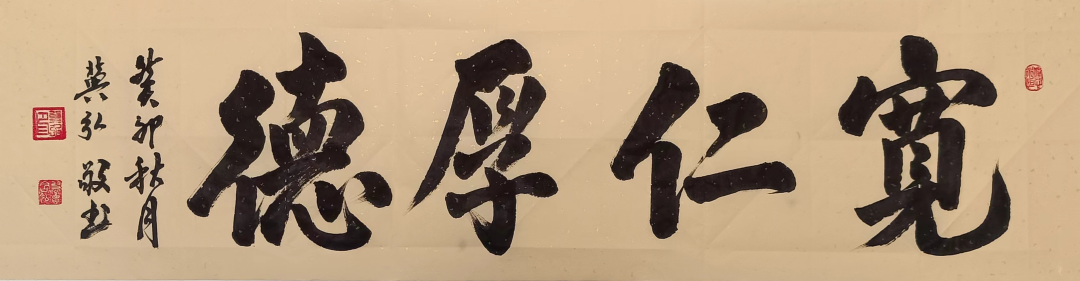 寬仁厚德
癸卯秋月
冀弘敬书